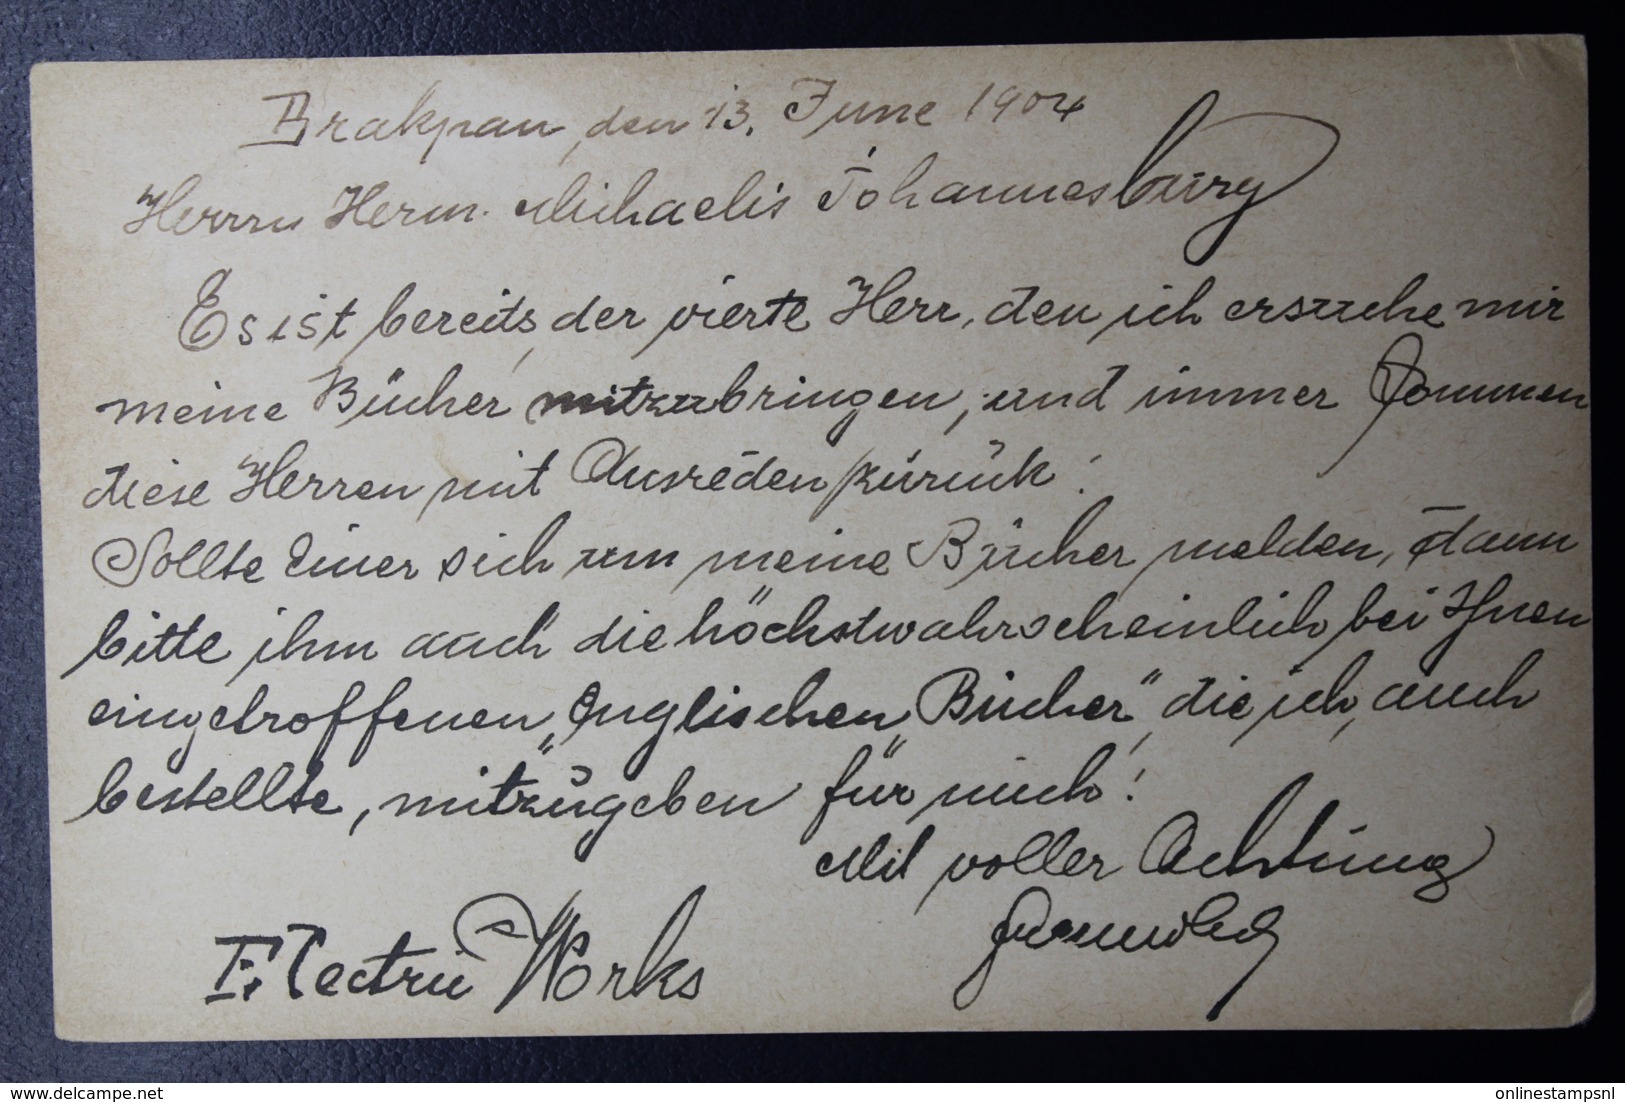 Brakpan, den 13. June 1904
Herrn Herm. Michaelis Johannesburg
Es ist bereits der vierte Herr, den ich ersuche mir
meine Bücher mitzubringen, und immer kommen
diese Herren mit Ausreden zurück!
Sollte Einer sich um meine Bücher melden, dann
bitte ihm auch die höchstwahrscheinlich bei Ihnen
eingetroffenen „Englischen Bücher“, die ich auch
bestellte, mitzugeben für mich!
Mit voller Achtung
Electric Works
onlinestampsnl